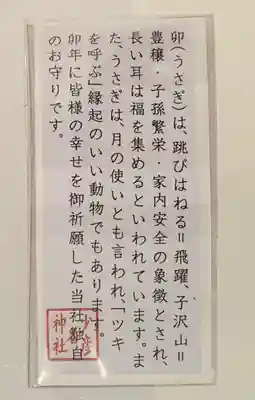 卯(うさぎ)は、跳びはねる=飛躍、子沢山=
豊穣・子孫繁栄・家内安全の象徴とされ、
長い耳は福を集めるといわれています。ま
た、うさぎは、月の使いとも言われ、「ツキ
を呼ぶ」縁起のいい動物でもあります。
卯年に皆様の幸せを御祈願した当社独自
のお守りです。
神社